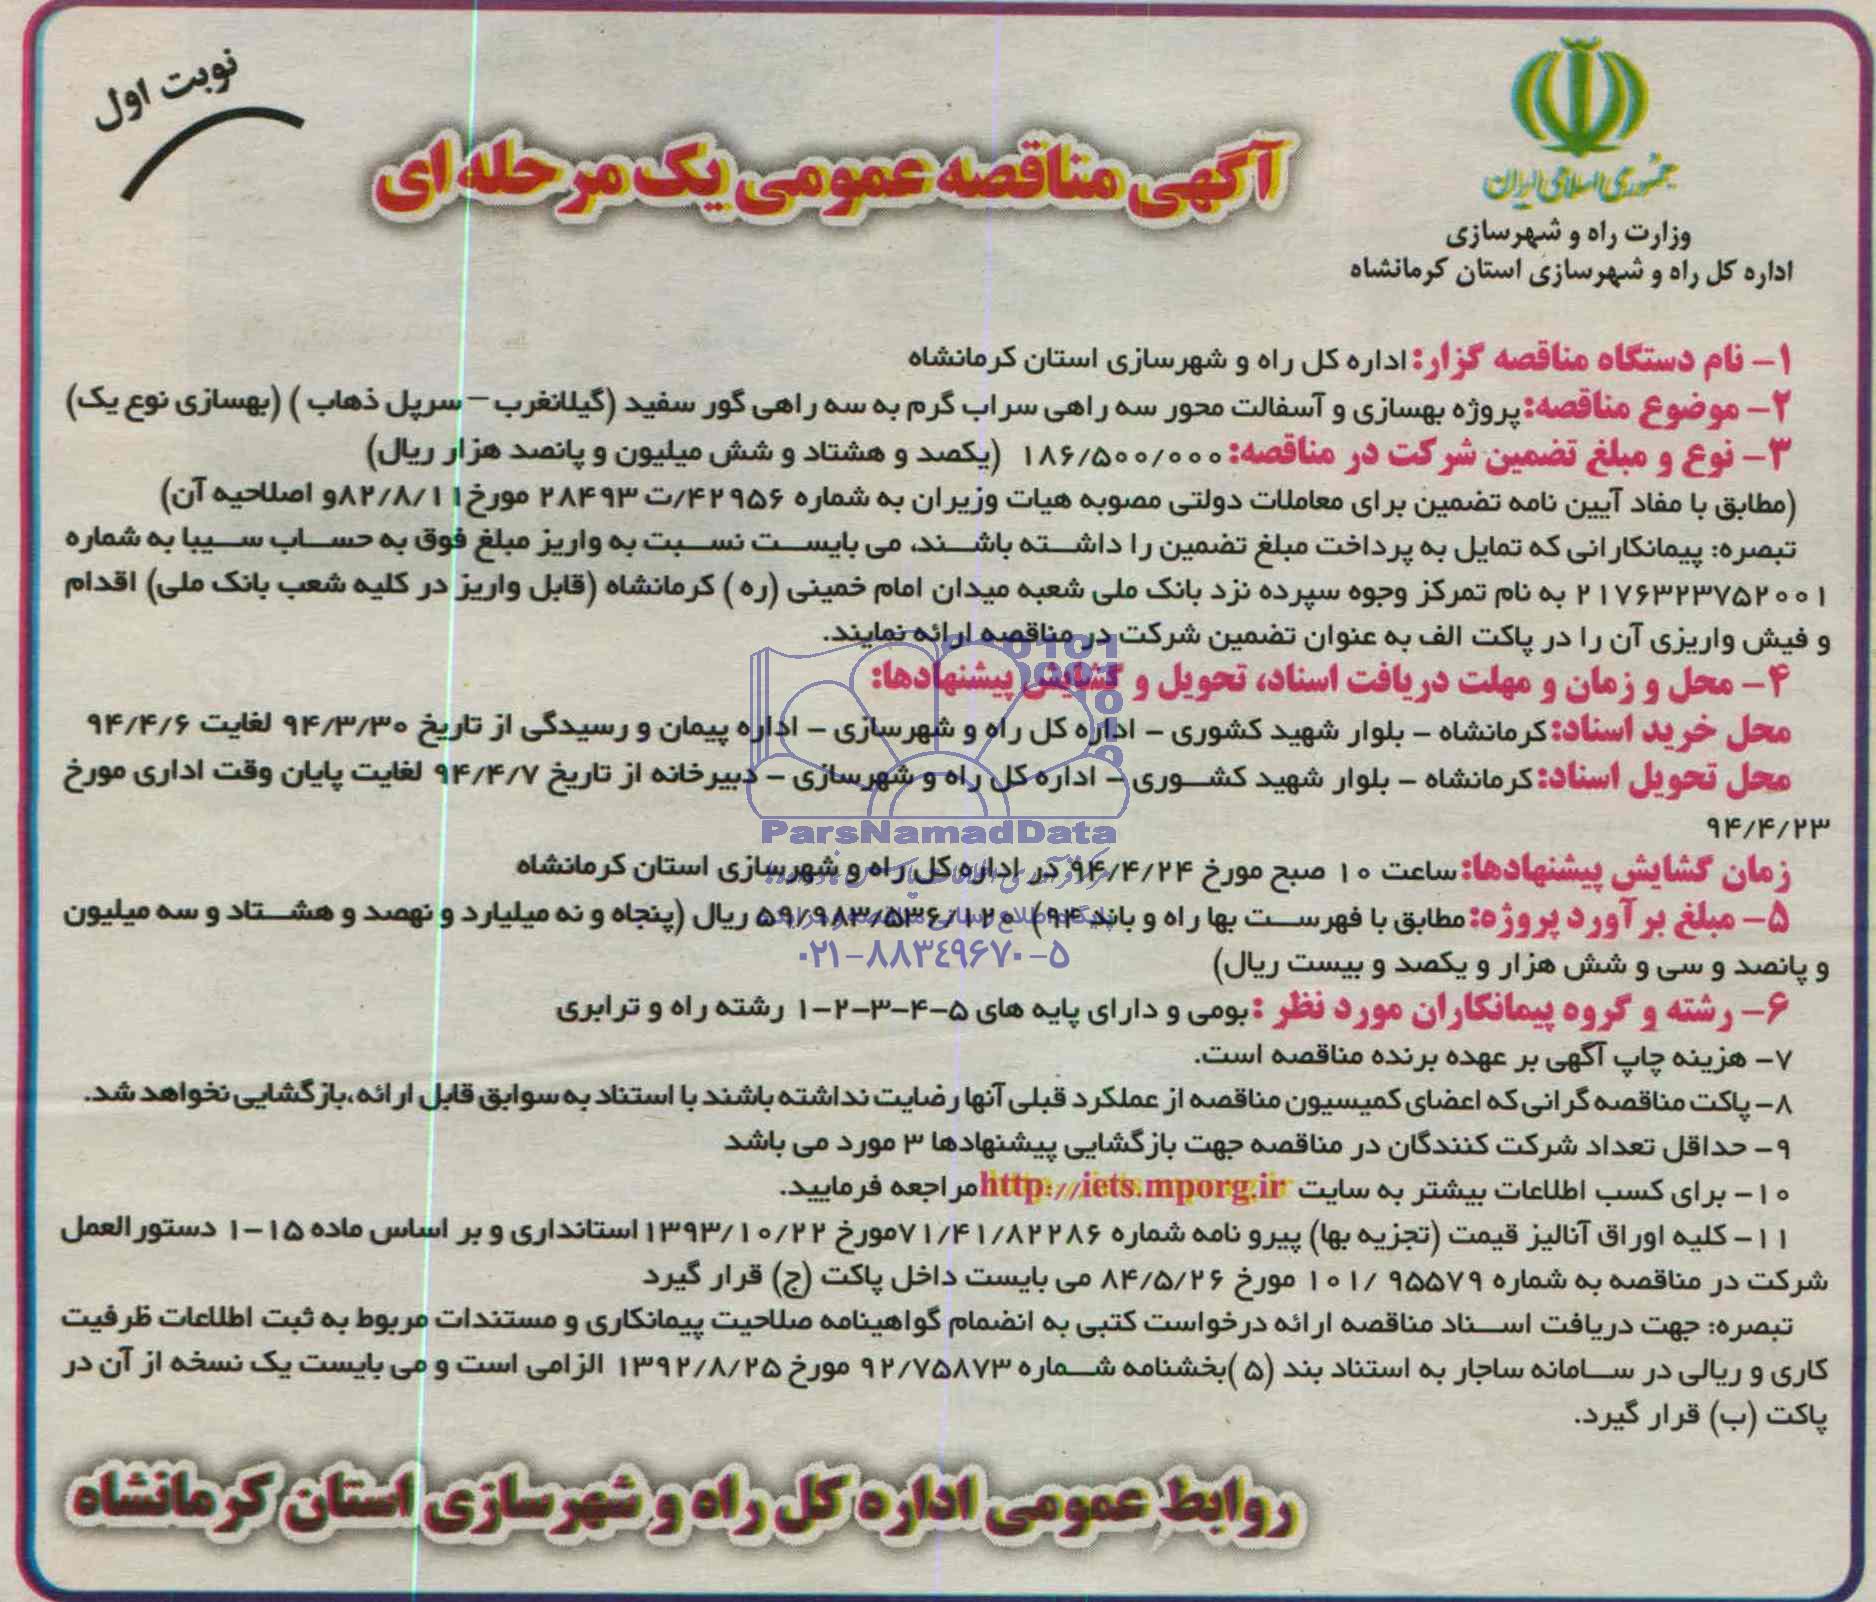 نوبت اول
جمهوری اسلامی ایران
وزارت راه و شهرسازی
اداره کل راه و شهرسازی استان کرمانشاه
آگهی مناقصه عمومی یک مرحله ای
۱- نام دستگاه مناقصه گزار: اداره کل راه و شهرسازی استان کرمانشاه
۲- موضوع مناقصه: پروژه بهسازی و آسفالت محور سه راهی سراب گرم به سه راهی گور سفید (گیلانغرب – سرپل ذهاب ) (بهسازی نوع یک)
۳- نوع و مبلغ تضمین شرکت در مناقصه: ۱۸۶/۵۰۰/۰۰۰ (یکصد و هشتاد و شش میلیون و پانصد هزار ریال)
(مطابق با مفاد آیین نامه تضمین برای معاملات دولتی مصوبه هیات وزیران به شماره ۴۲۹۵۶/ت ۲۸۴۹۳ مورخ ۸۲/۸/۱۱و اصلاحیه آن)
تبصره: پیمانکارانی که تمایل به پرداخت مبلغ تضمین را داشته باشند، می بایست نسبت به واریز مبلغ فوق به حساب سیبا به شماره
۲۱۷۶۳۲۳۷۵۲۰۰۱ به نام تمرکز وجوه سپرده نزد بانک ملی شعبه میدان امام خمینی (ره ) کرمانشاه (قابل واریز در کلیه شعب بانک ملی) اقدام
و فیش واریزی آن را در پاکت الف به عنوان تضمین شرکت در مناقصه ارائه نمایند.
۴- محل و زمان و مهلت دریافت اسناد، تحویل و گشایش پیشنهادها:
محل خرید اسناد: کرمانشاه - بلوار شهید کشوری - اداره کل راه و شهرسازی - اداره پیمان و رسیدگی از تاریخ ۹۴/۳/۳۰ لغایت ۹۴/۴/۶
محل تحویل اسناد: کرمانشاه - بلوار شهید کشوری - اداره کل راه و شهرسازی - دبیرخانه از تاریخ ۹۴/۴/۷ لغایت پایان وقت اداری مورخ
۹۴/۴/۲۳
ParsNamadData
زمان گشایش پیشنهادها: ساعت ۱۰ صبح مورخ ۹۴/۴/۲۴ در اداره کل راه و شهرسازی استان کرمانشاه
۵- مبلغ برآورد پروژه: مطابق با فهرست بها راه و باند ۹۴) ۵۹/۹۸۳/۵۳۶/۱۲۰ ریال (پنجاه و نه میلیارد و نهصد و هشتاد و سه میلیون
و پانصد و سی و شش هزار و یکصد و بیست ریال)
۰۲۱-۸۸۳۴۹۶۷۰-۵
۶- رشته و گروه پیمانکاران مورد نظر : بومی و دارای پایه های ۵-۴-۳-۲-۱ رشته راه و ترابری
۷- هزینه چاپ آگهی بر عهده برنده مناقصه است.
۸- پاکت مناقصه گرانی که اعضای کمیسیون مناقصه از عملکرد قبلی آنها رضایت نداشته باشند با استناد به سوابق قابل ارائه،بازگشایی نخواهد شد.
۹- حداقل تعداد شرکت کنندگان در مناقصه جهت بازگشایی پیشنهادها ۳ مورد می باشد
۱۰- برای کسب اطلاعات بیشتر به سایت http://iets.mporg.ir مراجعه فرمایید.
۱۱- کلیه اوراق آنالیز قیمت (تجزیه بها) پیرو نامه شماره ۷۱/۴۱/۸۲۲۸۶مورخ ۱۳۹۳/۱۰/۲۲ استانداری و بر اساس ماده ۱۵-۱ دستورالعمل
شرکت در مناقصه به شماره ۹۵۵۷۹ /۱۰۱ مورخ ۸۴/۵/۲۶ می بایست داخل پاکت (ج) قرار گیرد
تبصره: جهت دریافت اسناد مناقصه ارائه درخواست کتبی به انضمام گواهینامه صلاحیت پیمانکاری و مستندات مربوط به ثبت اطلاعات ظرفیت
کاری و ریالی در سامانه ساجار به استناد بند (۵ )بخشنامه شماره ۹۲/۷۵۸۷۳ مورخ ۱۳۹۲/۸/۲۵ الزامی است و می بایست یک نسخه از آن در
پاکت (ب) قرار گیرد.
روابط عمومی اداره کل راه و شهرسازی استان کرمانشاه